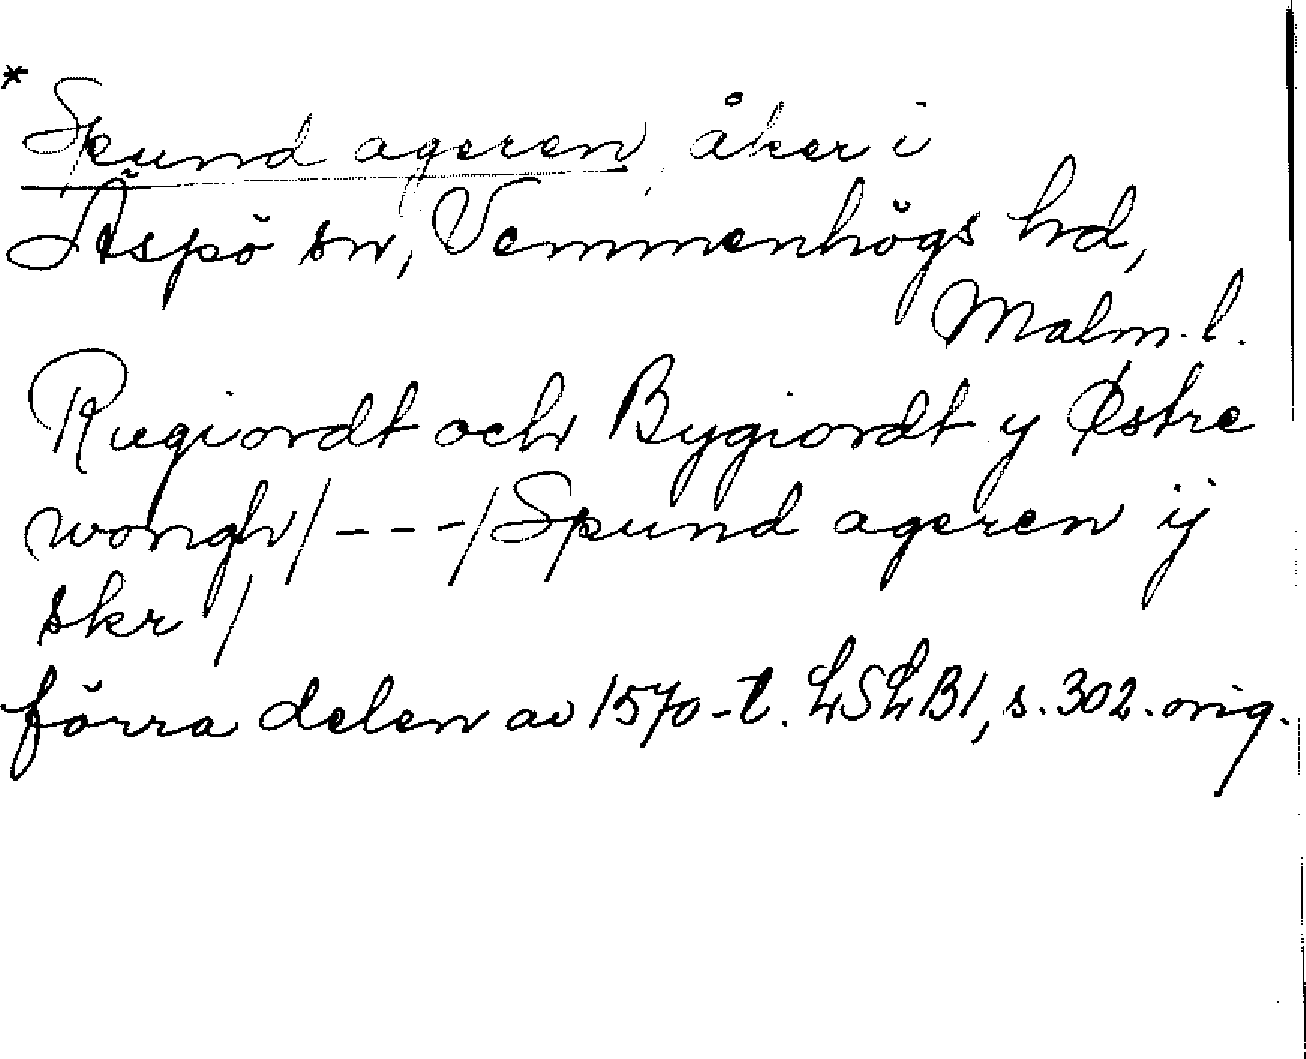 * Spund ageren, åker i
Äspö sn, Vemmenhögs hd,
Malm. l.
Rugiordt och Bygiordt y Østre
wongh/---/Spund ageren ij
skr/
förra delen av 1570-t. LSLB1, s. 302. orig.